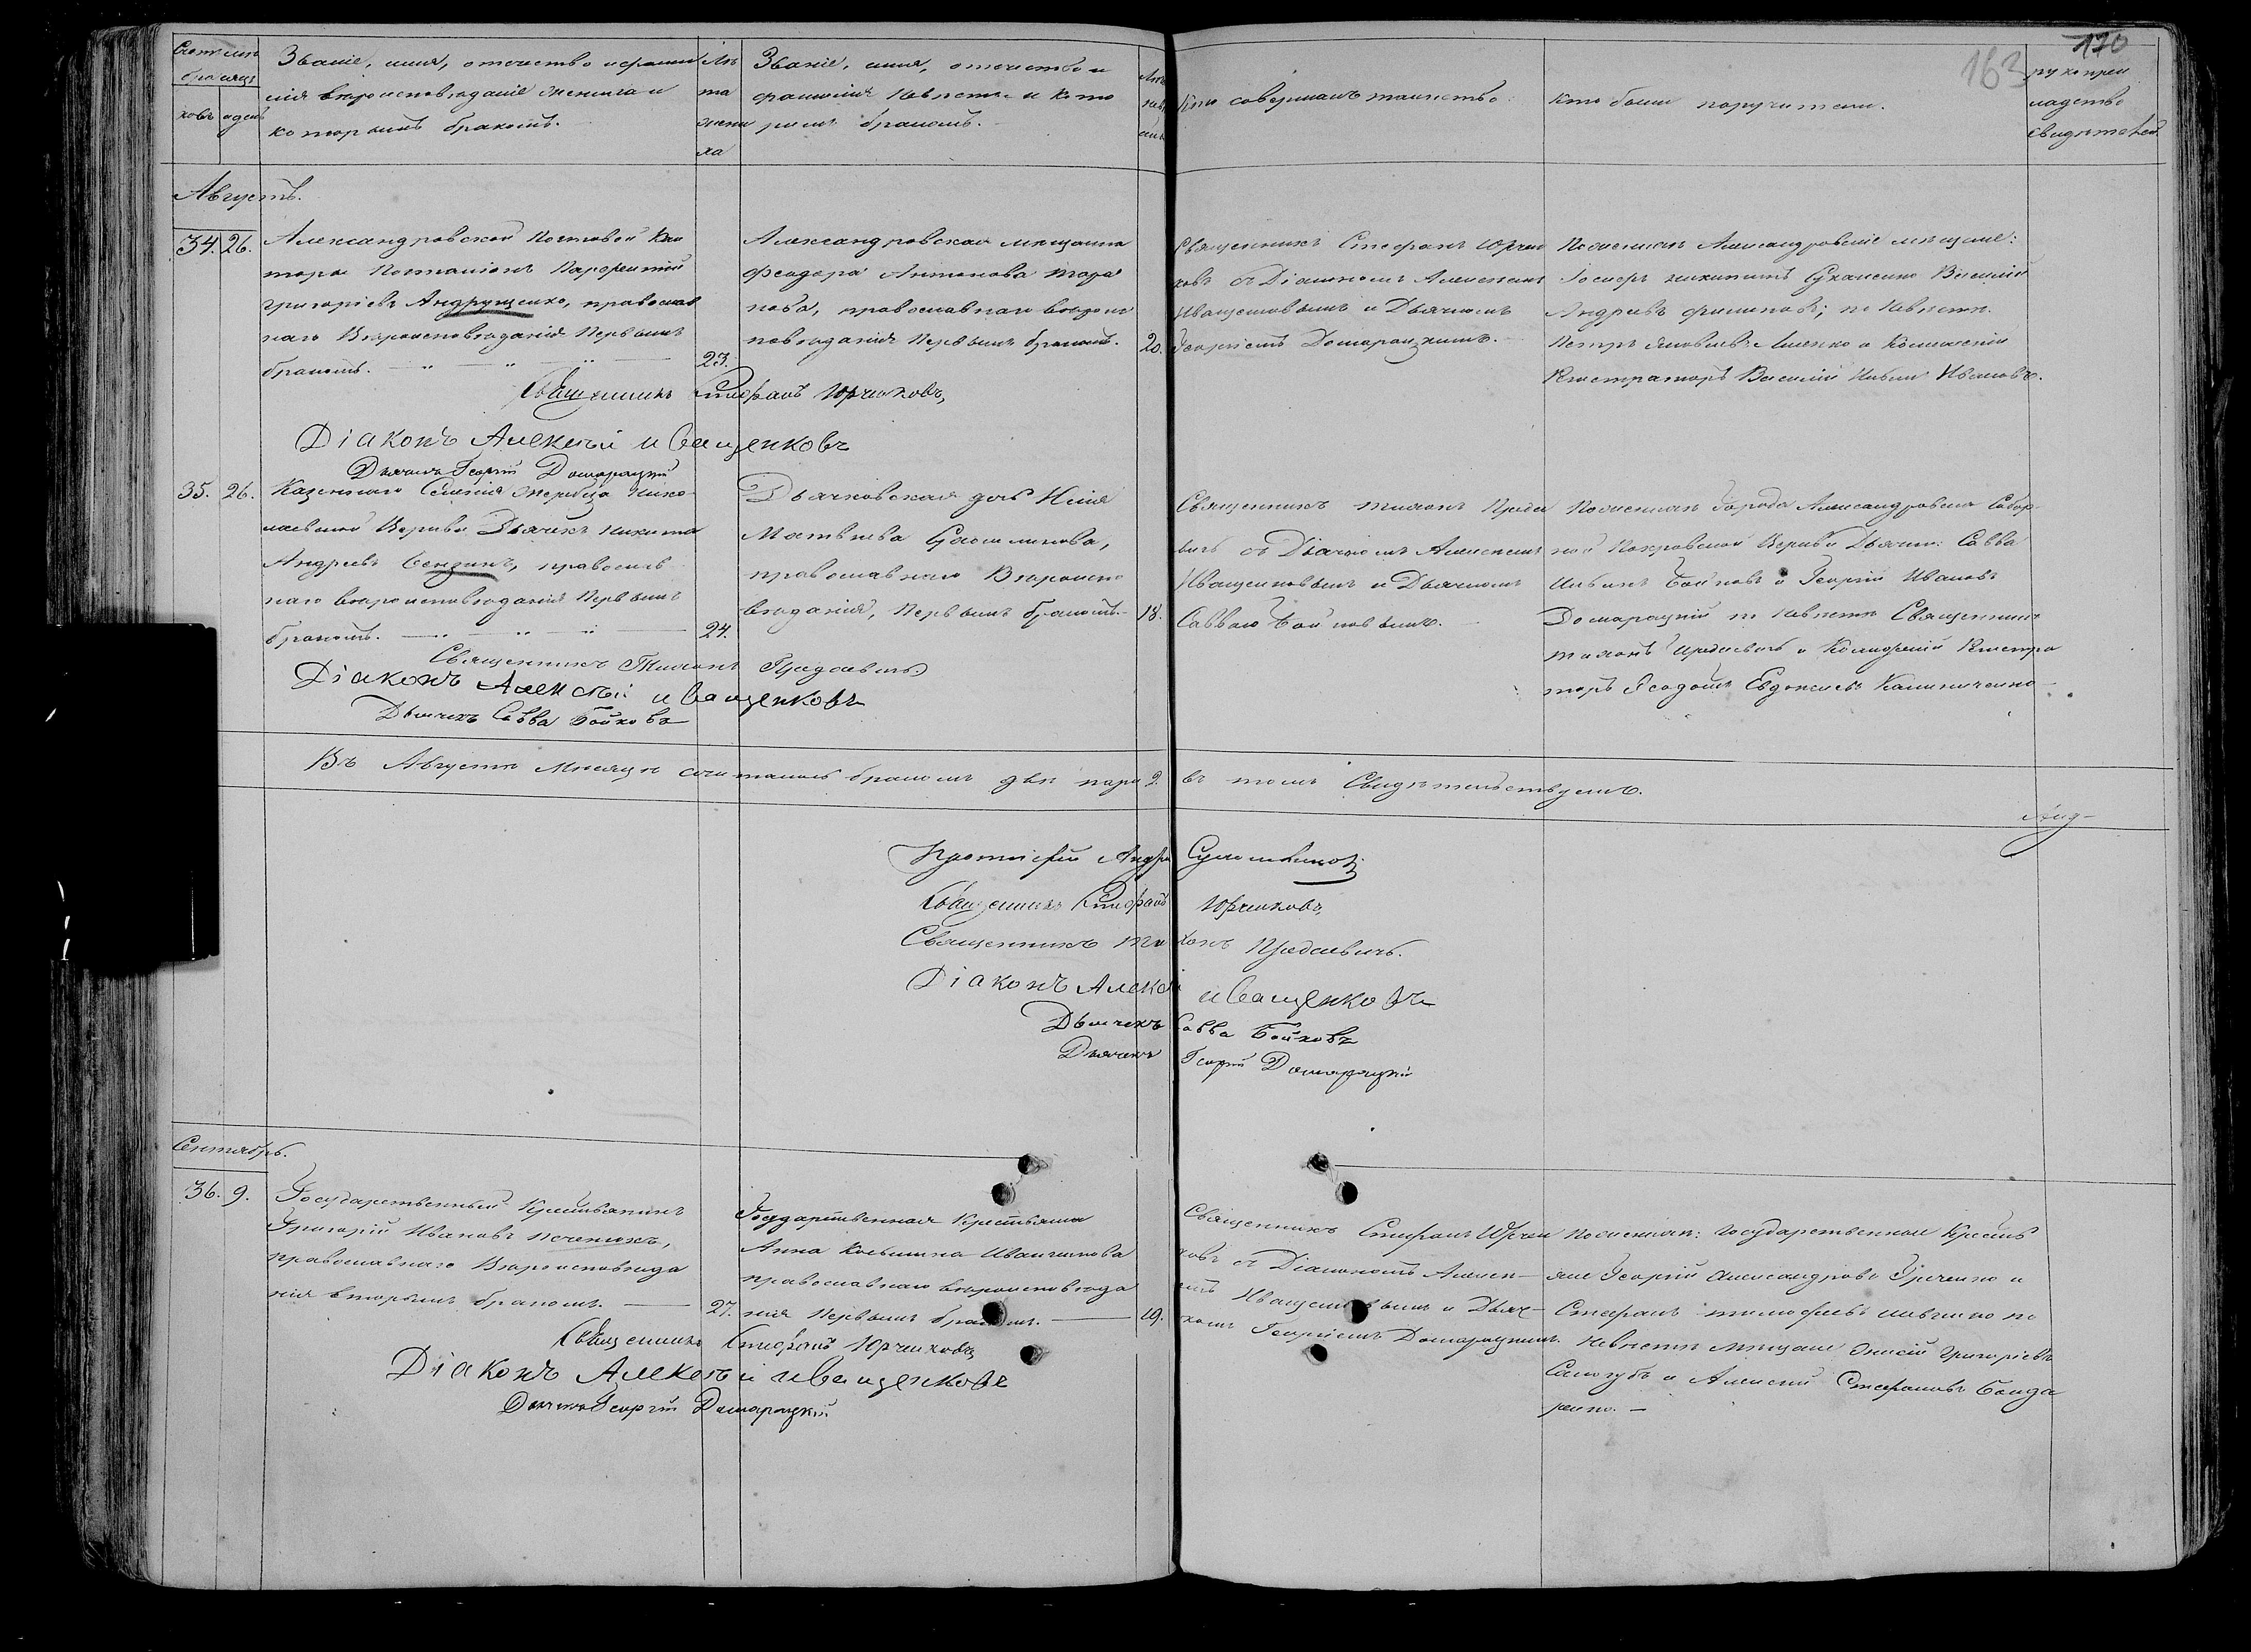 170
163
Счетъ мѣ
бра сяцъ
ковъ и день
Званіе, имя, отечество и фами
лія вѣроисповѣданіе жениха и
которымъ бракомъ.
Лѣ
та
жени
ха
Званіе, имя, отечество и
фамилія невѣсты и кото
рымъ бракомъ.
Лѣта
невѣ
Кто совершалъ таинство
Кто были поручители.
рукопри
кладство
свидѣтелей
Августъ.
34. 26.
Александровской Почтовой Кон
торы Почталіонъ Парфентій
Григоріевъ Андрущенко, православ
наго Вѣроисповѣданія Первымъ
бракомъ.
23.
Александровская мѣщанка
Феодора Антонова Тара
нова, православнаго вѣроис
повѣданія Первымъ бракомъ.
20.
Священникъ Стефанъ Юрчен
ковъ съ Діакономъ Алексѣемъ
Иващенковымъ и Дьячкомъ
Георгіемъ Домарацкимъ.
По женихѣ Александровскіе мѣщане:
Іосифъ Никитинъ Василій
Андреевъ Филиповъ; по Невѣстѣ
Петръ Яковлевъ и Колежскій
Регистраторъ Василій Ивановъ.
Священникъ Стефанъ Юрченковъ,
Діаконъ Алексѣй Иващенковъ
Дьячекъ Георгій Домарацкій
35. 26.
Казеннаго Селенія Жеребца Нико
лаевской Церкви Дьячекъ Никита
Андреевъ Сензинъ, православ
наго вѣроисповѣданія Первымъ
бракомъ.
24.
Дьячковская дочь
Матвѣева
православнаго Вѣроиспо
вѣданія, Первымъ бракомъ.
18.
Священникъ Тихонъ
съ Діакономъ Алексѣемъ
Иващенковымъ и Дьячкомъ
Саввою Бойковымъ.
По женихѣ Города Александровска Собор
ной Покровской Церкви Дьячки: Савва
Бойковъ и Георгій Ивановъ
Домарацкій по Невѣстѣ Священникъ
Тихонъ и Колежскій Регистра
торъ Евдокіевъ Калиниченко
Священникъ Тихонъ
Діаконъ Алексѣй Иващенковъ
Дьячекъ Савва Бойковъ
Въ Августѣ Мѣсяцѣ сочеталось бракомъ двѣ пары 2. въ томъ Свидѣтельствуемъ.
Протоіерей Андрей
Священникъ Стефанъ Юрченковъ,
Священникъ Тихонъ
Діаконъ Алексѣй Иващенковъ
Дьячекъ Савва Бойковъ
Дьячекъ Георгій Домарацкій
Сентябрь.
36. 9.
Государственный Крестьянинъ
Григорій Ивановъ Печеникъ,
православнаго Вѣроисповѣда
нія вторымъ бракомъ.
27.
Государственная Крестьянка
Анна Козьмина Иванчикова
православнаго вѣроисповѣда
нія Первымъ бракомъ.
19.
Священникъ Стефанъ Юрчен
ковъ съ Діакономъ Алексѣ
емъ Иващенковымъ и Дьяч
комъ Георгіемъ Домарацкимъ.
По женихѣ: Государственные Кресть
яне Георгій Александровъ Гречено и
Стефанъ Тимофеевъ Шевченко по
Невѣстѣ Мѣщане Григоріевъ
Самогубъ и Алексѣй Стефановъ Бонда
ренко.
Священникъ Стефанъ Юрченковъ
Діаконъ Алексѣй Иващенковъ
Дьячекъ Георгій Домарацкій